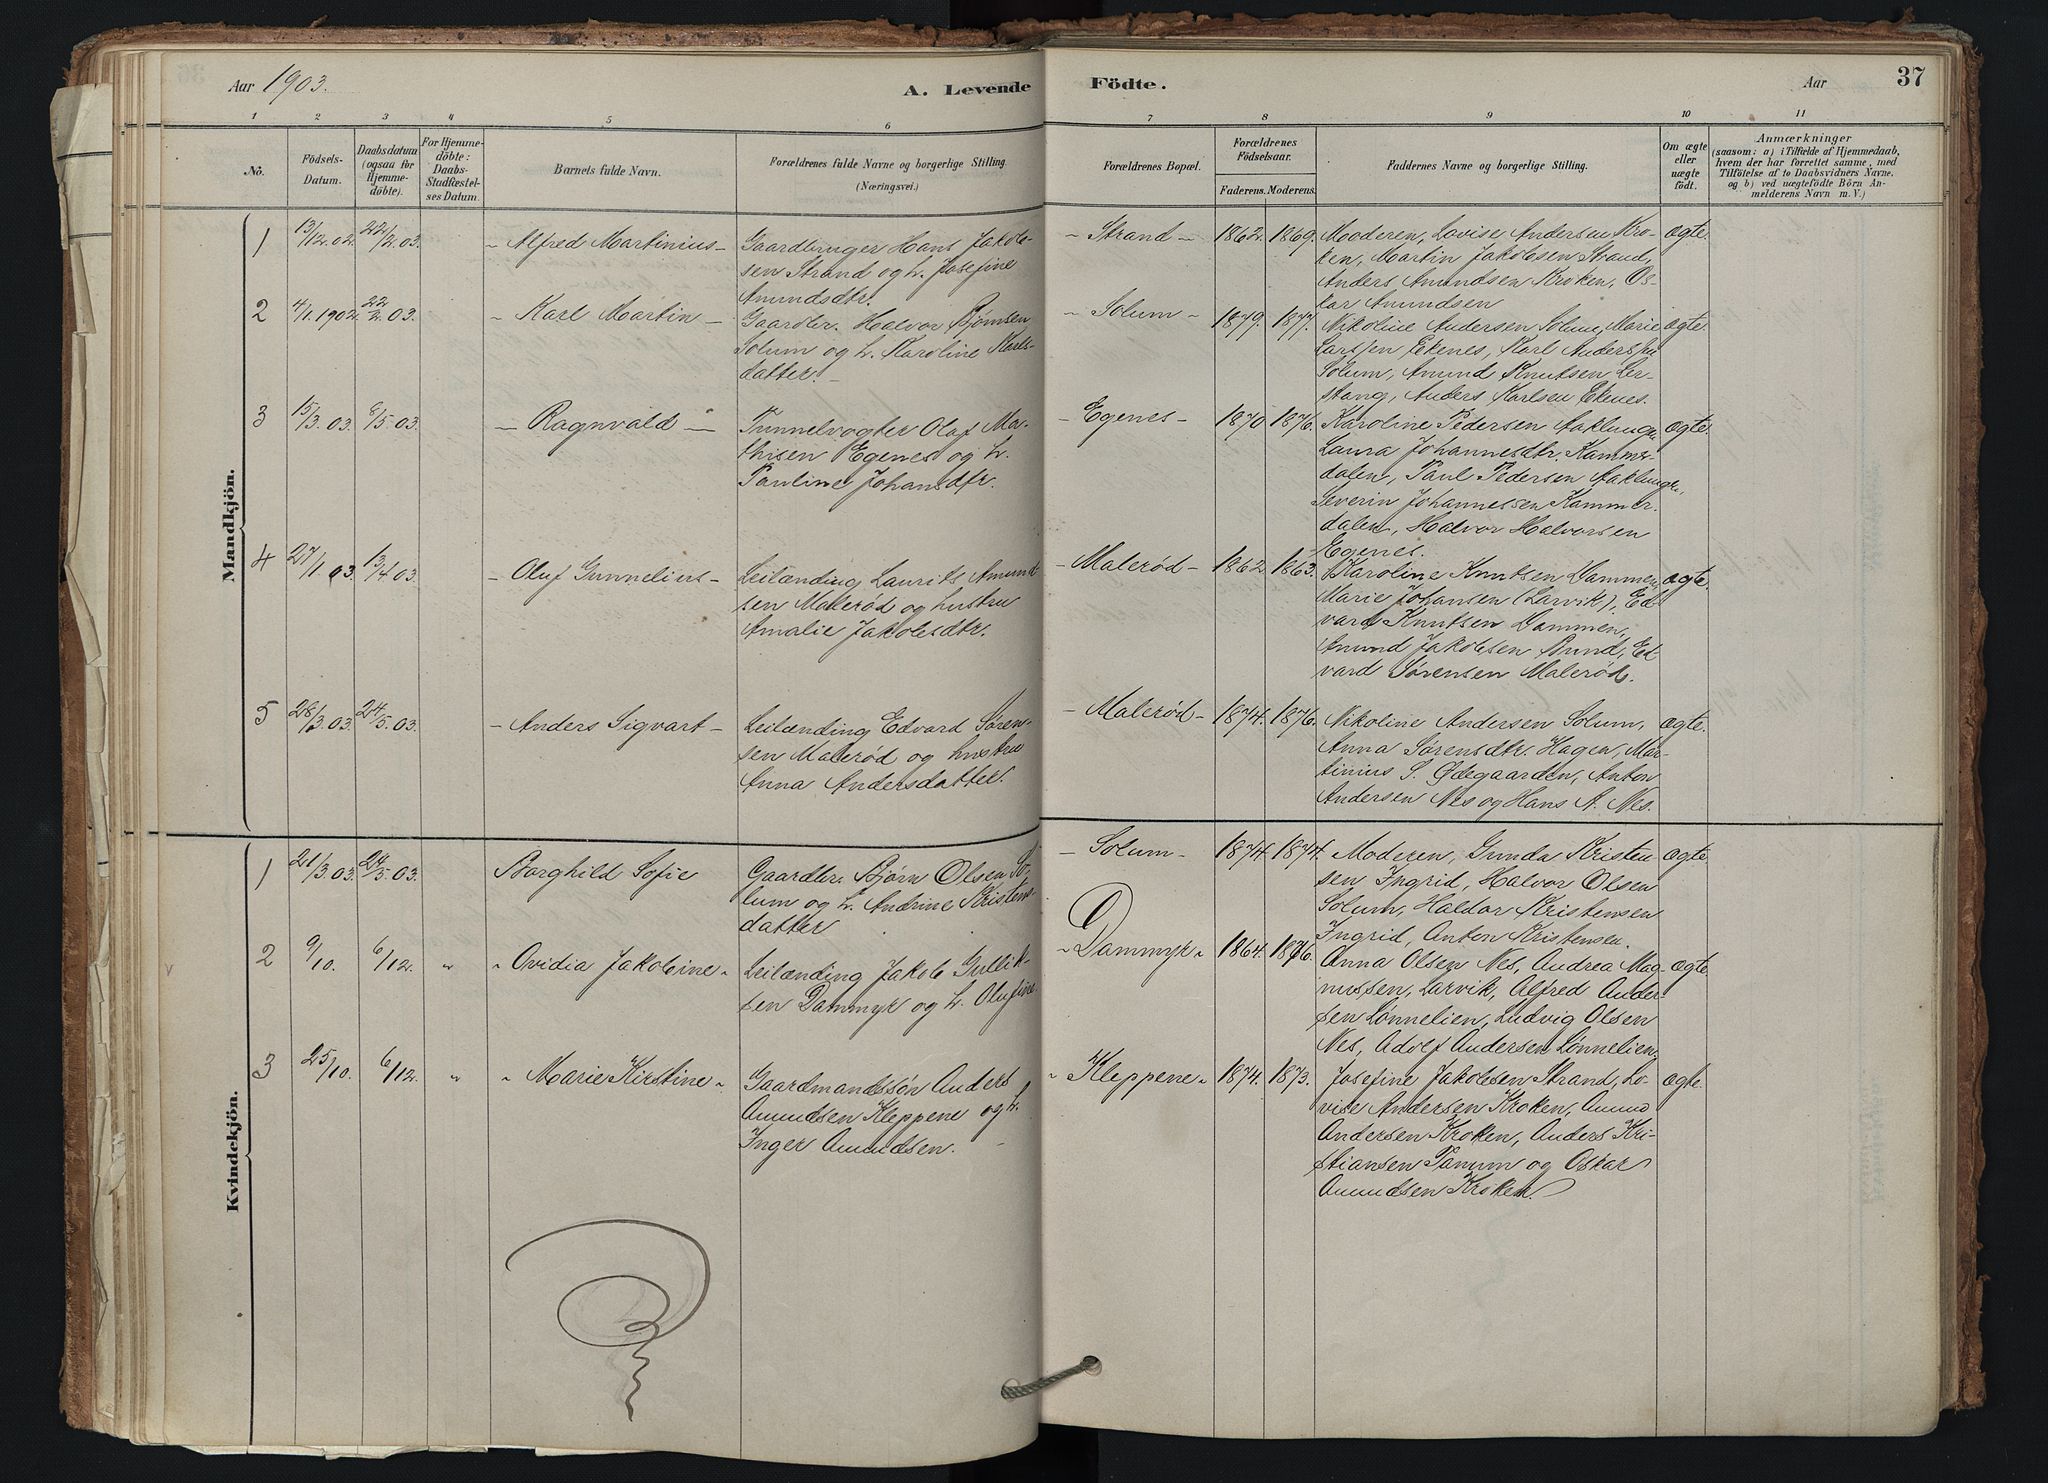 Aar 1903.
A. Levende Födte.
Aar
37
1 2 3 4 5 6 7 8 9 10 11
No.
Födsels-
Datum.
Daabsdatum
(ogsaa for
Hjemme-
döbte).
For Hjemme-
döbte:
Daabs-
Stadfæstel-
ses Datum.
Barnets fulde Navn.
Forældrenes fulde Navne og borgerlige Stilling.
(Næringsvei.)
Forældrenes Bopæl.
Forældrenes
Födselsaar.
Faderens. Moderens.
Faddernes Navne og borgerlige Stilling.
Om ægte
eller
uægte
födt.
Anmærkninger
(saasom: a) i Tilfælde af Hjemmedaab,
hvem der har forrettet samme, med
Tilföielse af to Daabsvidners Navne,
og b) ved uægtefödte Börn An-
melderens Navn m. V.)
Mandkjön.
1 13/12.02. 22/2.03. - Alfred Martinius -
Gaardbruger Hans Jakob-
sen Strand og h. Josefine
Amundsdtr.
- Strand - 1862. 1869.
Moderen, Lovise Andersen Kro-
ken, Martin Jakobsen Strand,
Anders Amundsen Kroken, Os-
kar Amundsen
ægte.
2 4/1.1902. 22/2.03. - Karl Martin -
Gaardbr. Halvor Bjørnsen
Solum og h. Karoline Karls-
datter. -
- Solum - 1879. 1877.
Nikoline Andersen Solum, Marie
Larssen Ekenes, Karl Anderssen
Solum, Amund Knutsen Ler-
stang, Anders Karlsen Ekenes.
ægte.
3 15/3.03. 8/5.03. - Ragnvald -
Tunnelvogter Olaf Ma-
thisen Egenes og h.
Pauline Johansdtr.
- Egenes - 1870 1876.
Karoline Pedersen Aaklungen,
Laura Johannesdtr. Kammer-
dalen, Paul Pedersen Aaklungen,
Severin Johannessen Kammer-
dalen, Halvor Halvorsen
Egenes.
ægte.
4 27/1.03. 13/4.03. - Oluf Gunnelius -
Leilænding Laurits Amund-
sen Malerød og hustru
Amalie Jakobsdtr.
- Malerød - 1862 1863.
Karoline Knutsen Dammen,
Marie Johansen (Larvik), Ed-
vard Knutsen Dammen,
Amund Jakobsen Bund, Ed-
vard Sørensen Malerød.
ægte.
5 28/3.03. 24/5.03. - Anders Sigvart -
Leilænding Edvard Søren-
sen Malerød og hustru
Anna Andersdatter.
- Malerød - 1874. 1876.
Nikoline Andersen Solum,
Anna Sørensdtr. Hagen, Mar-
tinius S. Ødegaarden, Anton
Andersen Nes og Hans A. Nes.
ægte.
Kvindekjön.
1 21/3.03. 24/5.03. Borghild Sofie
Gaardbr. Bjørn Olsen So-
lum og h. Andrine Kristens-
datter
- Solum - 1874. 1874.
Moderen, Gunda Kristen-
sen Ingrid, Halvor Olsen
Solum, Haldor Kristensen
Ingrid, Anton Kristensen.
ægte
2 9/10. 6/12. " " Ovidia Jakobine "
Leilænding Jakob Gullik-
sen Dammyr og h. Olufine
" Dammyr " 1864. 1876.
Anna Olsen Nes, Andrea Mag-
nussen, Larvik, Alfred Ander-
sen Lønnelien, Ludvig Olsen
Nes, Adolf Andersen Lønnelien.
ægte
3 25/10. 6/12. " " Marie Kirstine "
Gaardmandssøn Anders
Amundsen Kleppene og h.
Inger Amundsen. -
" Kleppene " 1874. 1873.
Josefine Jakobsen Strand, Lo-
vise Andersen Kroken, Amund
Andersen Kroken, Anders Kri-
stiansen Panum og Oskar
Amundsen Kroken.
ægte.